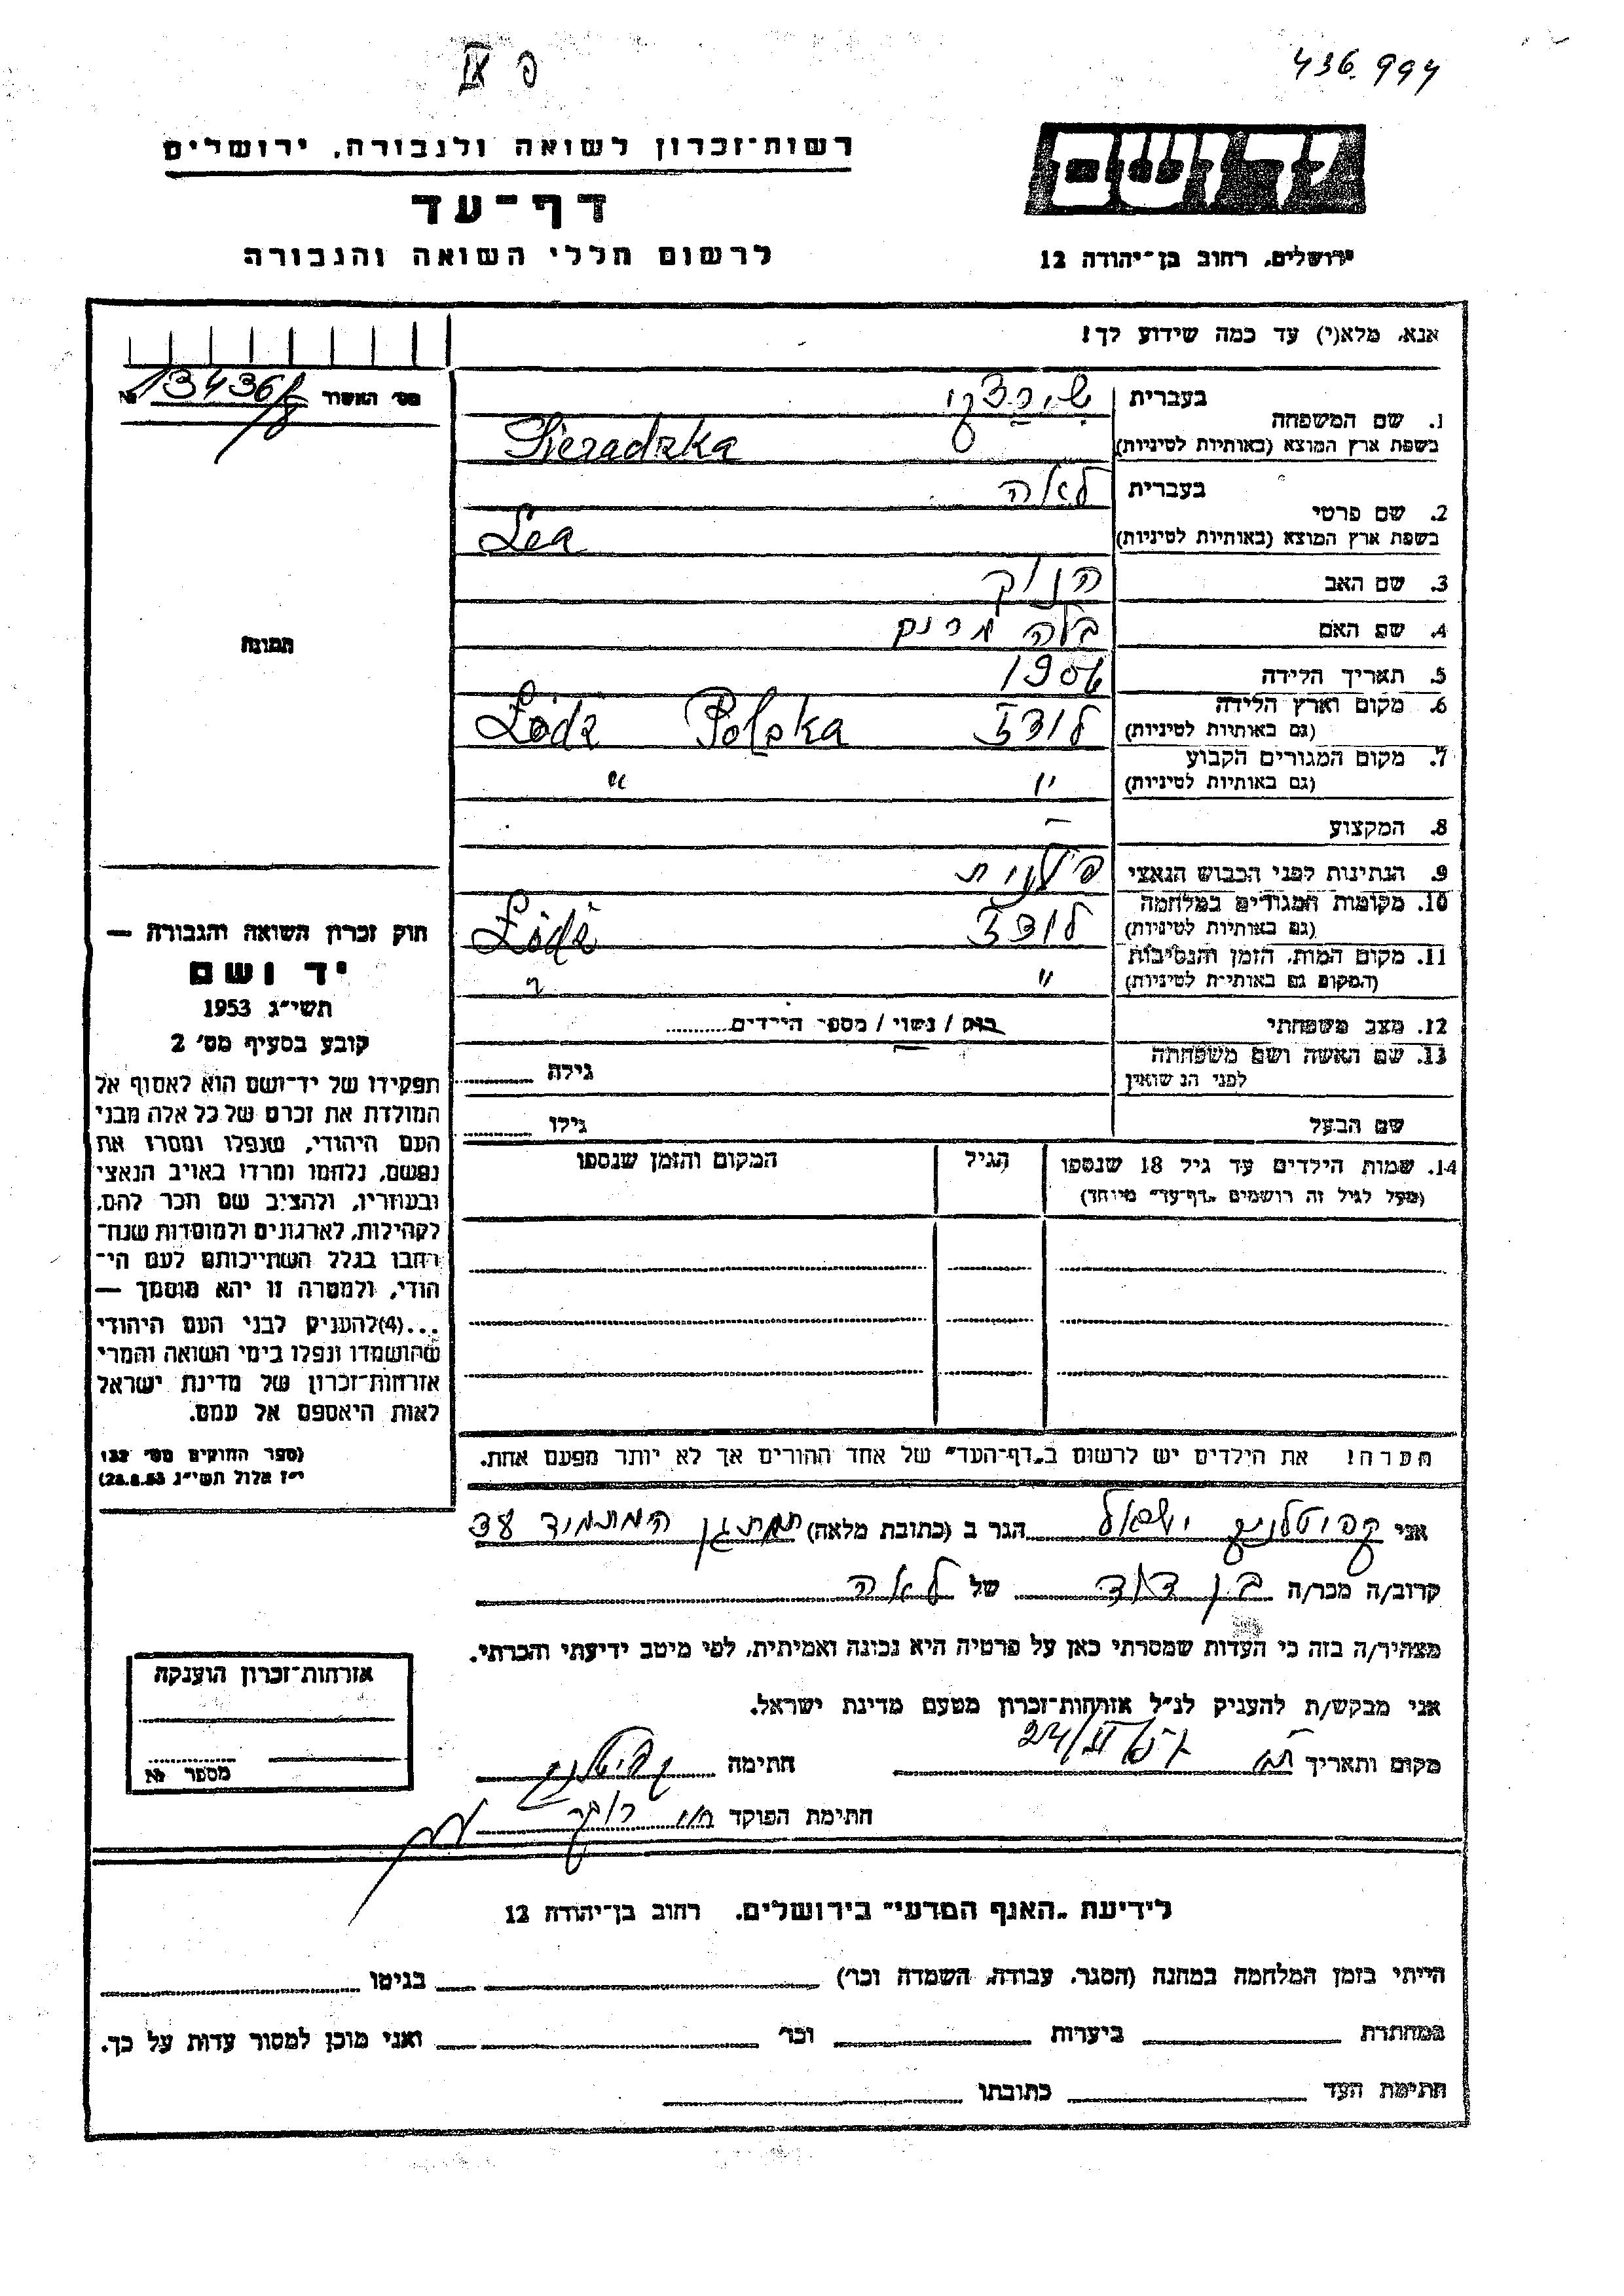 436.994
פ IX
רשות־זכרון לשואה ולגבורה, ירושלים
דף־עד
לרשום חללי השואה והגבורה
יד ושם
ירושלים, רחוב בן־יהודה 12
אנא, מלא(י) עד כמה שידוע לך!
מס׳ האשור № 13436/8
1. שם המשפחה
בעברית
בשפת ארץ המוצא (באותיות לטיניות)
Sieradzka
2. שם פרטי
בעברית לאה
בשפת ארץ המוצא (באותיות לטיניות) Lea
3. שם האב הנוק
4. שם האם בלה
5. תאריך הלידה
6. מקום וארץ הלידה
(גם באותיות לטיניות) לודז Łódź Polska
7. מקום המגורים הקבוע
(גם באותיות לטיניות) " "
8. המקצוע –
9. הנתינות לפני הכבוש הנאצי פולנית
10. מקומות המגורים במלחמה
(גם באותיות לטיניות) לודז Łódź
11. מקום המות, הזמן והנסיבות
(המקום גם באותיות לטיניות) " "
12. מצב משפחתי רווק / נשוי / מספר הילדים
13. שם האשה ושם משפחתה
לפני הנשואין
גילה
שם הבעל
גילו
14. שמות הילדים עד גיל 18 שנספו
(מעל לגיל זה רושמים „דף־עד” מיוחד)
הגיל
המקום והזמן שנספו
תמונה
חוק זכרון השואה והגבורה —
יד ושם
תשי״ג 1953
קובע בסעיף מס׳ 2
תפקידו של יד־ושם הוא לאסוף אל
המולדת את זכרם של כל אלה מבני
העם היהודי, שנפלו ומסרו את
נפשם, נלחמו ומרדו באויב הנאצי
ובעוזריו, ולהציב שם וזכר להם,
לקהילות, לארגונים ולמוסדות שנח־
רחבו בגלל השתייכותם לעם הי־
הודי, ולמטרה זו יהא מוסמך —
...(4)להעניק לבני העם היהודי
שהושמדו ונפלו בימי השואה והמרי
אזרחות־זכרון של מדינת ישראל
לאות היאספם אל עמם.
(ספר החוקים מס׳ 132
י״ז אלול תשי״ג 28.8.53)
הערה! את הילדים יש לרשום ב„דף־העד” של אחד ההורים אך לא יותר מפעם אחת.
אני ישראל הגר ב (כתובת מלאה) רמת גן המתמיד
קרוב/ה מכר/ה בן דוד של לאה
מצהיר/ה בזה כי העדות שמסרתי כאן על פרטיה היא נכונה ואמיתית, לפי מיטב ידיעתי והכרתי.
אני מבקש/ת להעניק לנ״ל אזרחות־זכרון מטעם מדינת ישראל.
מקום ותאריך
חתימה
חתימת הפוקד
אזרחות־זכרון הוענקה
מספר №
לידיעת „האגף המדעי” בירושלים, רחוב בן־יהודה 12
הייתי בזמן המלחמה במחנה (הסגר, עבודה, השמדה וכו׳) בגיטו
במחתרת ביערות וכו׳ ואני מוכן למסור עדות על כך.
חתימת העד כתובתו